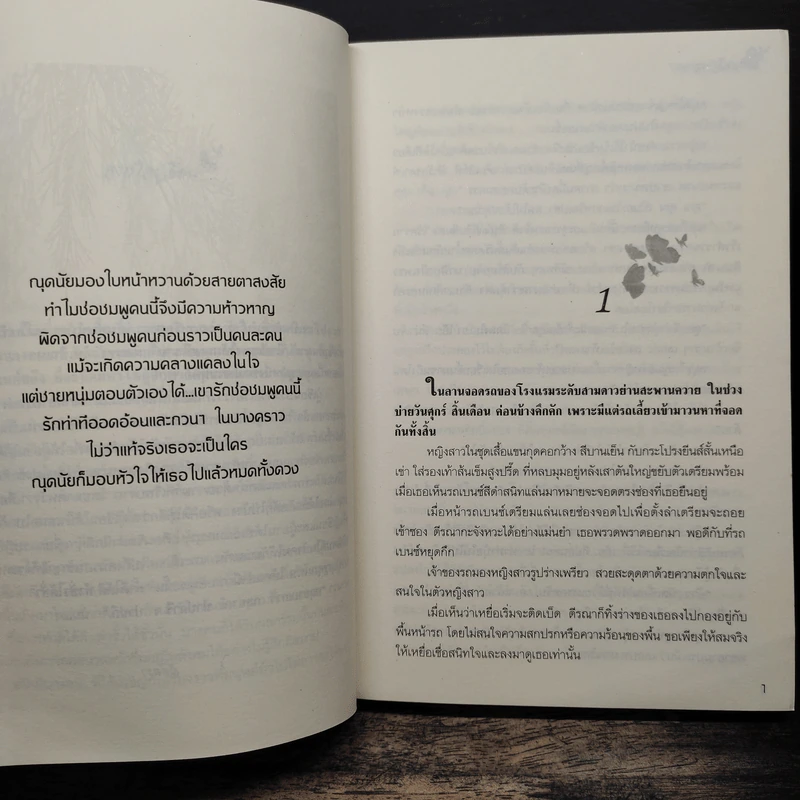 ณุดนัยมองใบหน้าหวานด้วยสายตาสงสัย
ทำไมช่อชมพูคนนี้จึงมีความห้าวหาญ
ผิดจากช่อชมพูคนก่อนราวเป็นคนละคน
แม้จะเกิดความคลางแคลงในใจ
แต่ชายหนุ่มตอบตัวเองได้...เขารักช่อชมพูคนนี้
รักท่าทีออดอ้อนและกวนๆ ในบางคราว
ไม่ว่าแท้จริงเธอจะเป็นใคร
ณุดนัยก็มอบหัวใจให้เธอไปแล้วหมดทั้งดวง
1
ในลานจอดรถของโรงแรมระดับสามดาวย่านสะพานควาย ในช่วง
บ่ายวันศุกร์ สิ้นเดือน ค่อนข้างคึกคัก เพราะมีแต่รถเลี้ยวเข้ามาวนหาที่จอด
กันทั้งสิ้น
หญิงสาวในชุดเสื้อแขนกุดคอกว้าง สีบานเย็น กับกระโปรงยีนส์สั้นเหนือ
เข่า ใส่รองเท้าส้นเข็มสูงปรี๊ด ที่หลบมุมอยู่หลังเสาต้นใหญ่ขยับตัวเตรียมพร้อม
เมื่อเธอเห็นรถเบนซ์สีดำสนิทแล่นมาหมายจะจอดตรงช่องที่เธอยืนอยู่
เมื่อหน้ารถเบนซ์เตรียมแล่นเลยช่องจอดไปเพื่อตั้งลำเตรียมจะถอย
เข้าซอง ดีรณากะจังหวะได้อย่างแม่นยำ เธอพรวดพราดออกมา พอดีกับที่รถ
เบนซ์หยุดกึก
เจ้าของรถมองหญิงสาวรูปร่างเพรียว สวยสะดุดตาด้วยความตกใจและ
สนใจในตัวหญิงสาว
เมื่อเห็นว่าเหยื่อเริ่มจะติดเบ็ด ดีรณาก็ทิ้งร่างของเธอลงไปกองอยู่กับ
พื้นหน้ารถ โดยไม่สนใจความสกปรกหรือความร้อนของพื้น ขอเพียงให้สมจริง
ให้เหยื่อเชื่อสนิทใจและลงมาดูเธอเท่านั้น
1